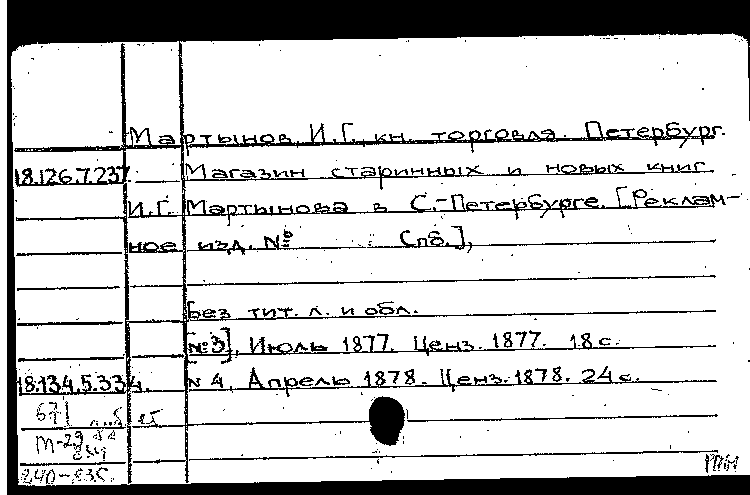 Мартынов, И.Г., кн. торговля. Петербург.
18.126.7.237 Магазин старинных и новых книг
И.Г. Мартынова в С.-Петербурге. [Реклам-
ное изд. № Спб.],
Без тит. л. и обл.
[№3], Июль 1877. Ценз. 1877. 18 с.
18.134.5.334. № 4, Апрель 1878. Ценз. 1878. 24 с.
671
М-29